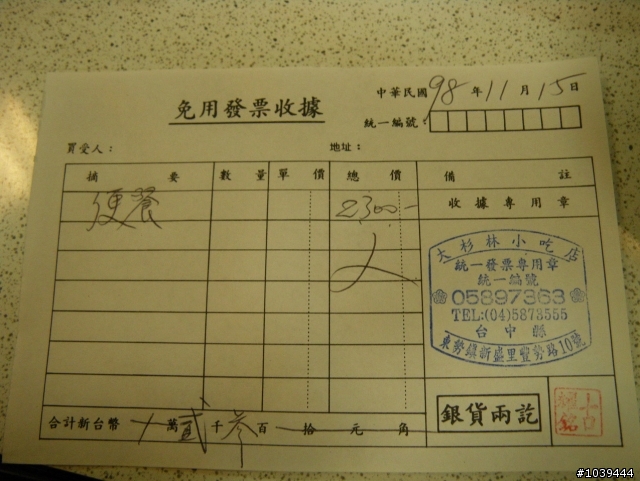 中華民國98年11月15日
免用發票收據
統一編號：
買受人：
地址：
摘要 數量 單價 總價 備註
便餐 2300-
收據專用章
大杉林小吃店
統一發票專用章
統一編號
05897363
TEL:(04)5873555
台中縣
東勢鎮新盛里豐勢路10號
銀貨兩訖
合計新台幣 萬貳千參百拾元角
#1039444